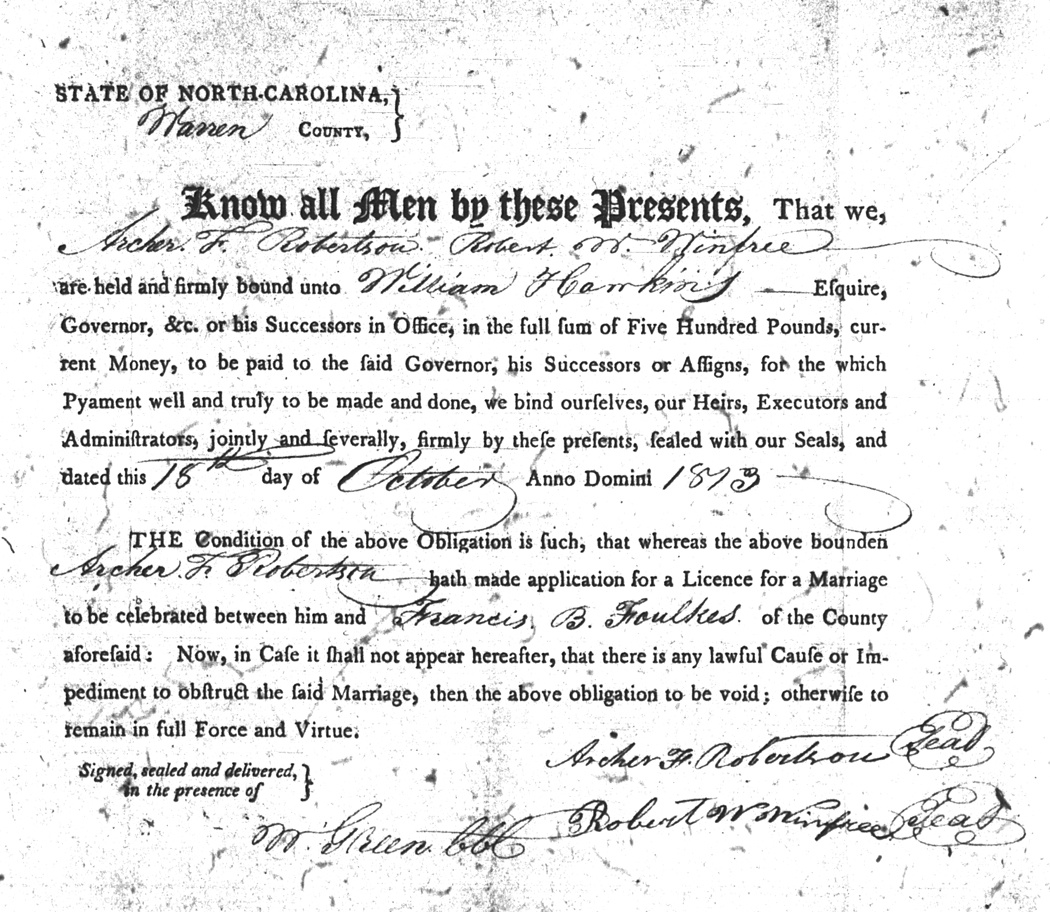 STATE OF NORTH-CAROLINA,
Warren COUNTY,
Know all Men by these Presents, That we,
Archer. F. Robertson. Robert. W. Winfree
are held and firmly bound unto William Hawkins Eſquire,
Governor, &c. or his Succeſſors in Office, in the full ſum of Five Hundred Pounds, cur-
rent Money, to be paid to the ſaid Governor, his Succeſſors or Aſſigns, for the which
Pyament well and truly to be made and done, we bind ourſelves, our Heirs, Executors and
Adminiſtrators, jointly and ſeverally, firmly by theſe preſents, ſealed with our Seals, and
dated this 18th day of October Anno Domini 1813
THE Condition of the above Obligation is ſuch, that whereas the above bounden
Archer. F. Robertson hath made application for a Licence for a Marriage
to be celebrated between him and Francis B. Foulkes. of the County
aforeſaid: Now, in Caſe it ſhall not appear hereafter, that there is any lawful Cauſe or Im-
pediment to obſtruct the ſaid Marriage, then the above obligation to be void; otherwiſe to
remain in full Force and Virtue.
Archer F. Robertson Seal
Signed, sealed and delivered,
in the presence of
Robert W Winfree Seal
W. Green